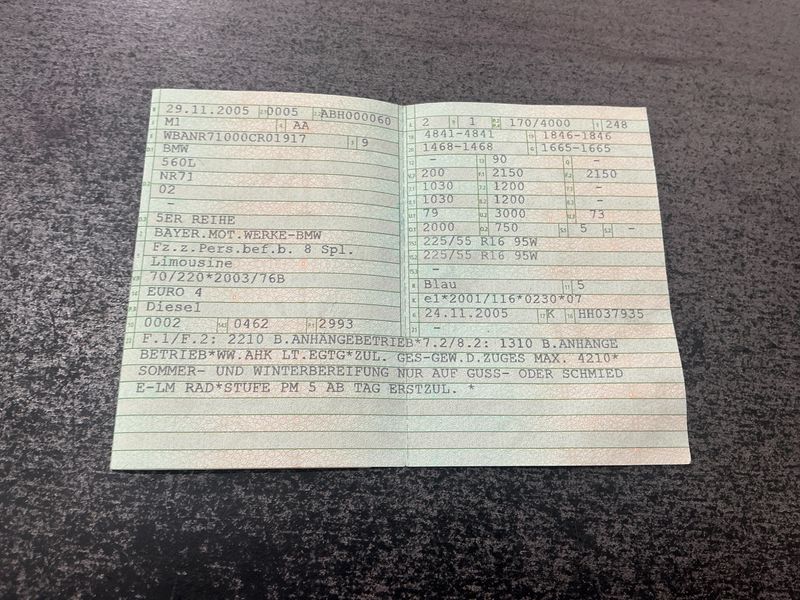 29.11.2005 0005 ABH000060
M1 AA
WBANR71000CR01917 9
BMW
560L
NR71
02
-
5ER REIHE
BAYER.MOT.WERKE-BMW
Fz.z.Pers.bef.b. 8 Spl.
Limousine
70/220*2003/76B
EURO 4
Diesel
0002 0462 2993
2 1 170/4000 248
4841-4841 1846-1846
1468-1468 1665-1665
- 90 -
200 2150 2150
1030 1200 -
1030 1200 -
79 3000 73
2000 750 5 -
225/55 R16 95W
225/55 R16 95W
-
Blau 5
e1*2001/116*0230*07
24.11.2005 K HH037935
-
F.1/F.2: 2210 B.ANHANGEBETRIEB*7.2/8.2: 1310 B.ANHANGE
BETRIEB*WW.AHK LT.EGTG*ZUL. GES-GEW.D.ZUGES MAX. 4210*
SOMMER- UND WINTERBEREIFUNG NUR AUF GUSS- ODER SCHMIED
E-LM RAD*STUFE PM 5 AB TAG ERSTZUL. *